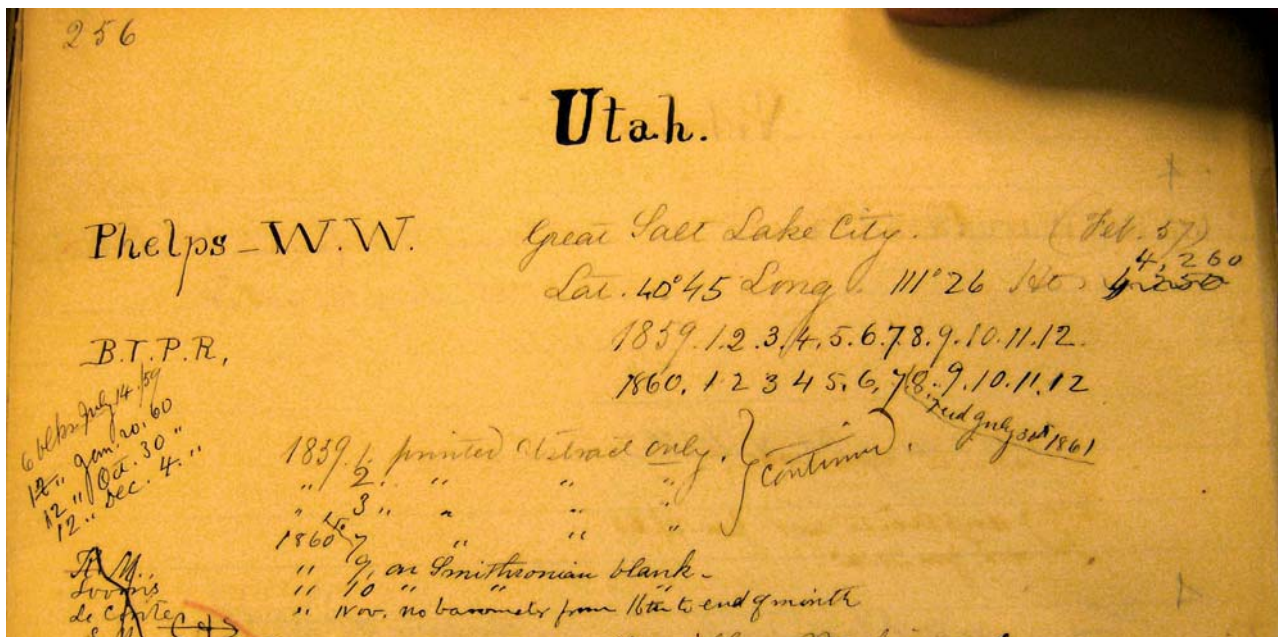 256
Utah.
Phelps - W. W. Great Salt Lake City. (Feb. 57)
4,260
Lat. 40°45 Long. 111°26 4250
B.T.P.R, 1859. 1. 2. 3. 4. 5. 6. 7. 8. 9. 10. 11. 12.
1860. 1 2 3 4 5. 6, 7, 8. 9. 10. 11. 12
July 30th 1861
6 July 14. /59
12 " Jan. 20. 60
12 " Oct. 30 "
12 " Dec. 4. "
1859. 1. printed abstract only. } continued.
" 2. " " "
" 3 " " " "
1860 7 " " "
" 9, on Smithsonian blank -
" 10 " " "
" Nov. no barometer from 16th to end of month
Loomis
Le Conte